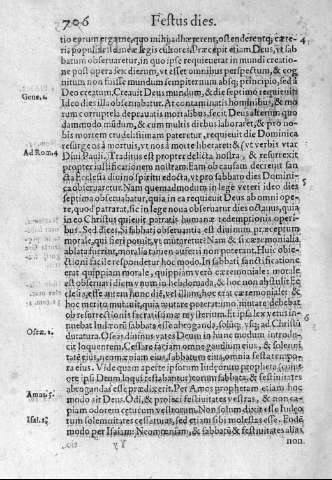 706
Festus dies.
tio eorum erga me, quo mihi adhærent, ostenderentq; cæte-
ris populis se meæ legis cultores. Præcepit etiam Deus, vt sab-
batum obseruaretur, in quo ipse requieuerat in mundi creatio-
ne post opera sex dierum, vt esset omnibus perspectum, & cog
nitum non fuisse mundum sempiternum absq; principio, sed à
Gene. 1.
Deo creatum. Creauit Deus mundum, & die septimo requieuit:
Ideo dies ille obseruabatur. At contaminatis hominibus, & mo
rum corruptela deprauatis mortalibus, fecit Deus alterum quo
dammodo mũdum, & cum multis diebus laboraret, & pro no-
bis mortem crudelissimam pateretur, requieuit die Dominica
Ad Rom. 4
resurgens à mortuis, vt nos à morte liberaret: & (vt verbis vtar
Diui Pauli. Traditus est propter delicta nostra, & resurrexit
propter iustificationem nostram. Eam ob causam decreuit san
cta Ecclesia diuino spiritu edocta, vt pro sabbato dies Domini-
ca obseruaretur. Nam quemadmodum in lege veteri ideo dies
5
septimo obseruabatur, quia in ea requieuit Deus ab omni ope-
re, quod patrarat, sic in lege noua obseruatur dies octauus, quia
in eo Christus quieuit patratis humanæ redemptionis operi-
bus. Sed dices. Si sabbati obseruantia est diuinum præceptum
morale, qui fieri potuit, vt mutaretur: Nam & si cæremonialia
ablata fuerint, moralia tamen auferri non poterant. Huic obie-
ctioni facile respondetur hoc modo. In sabbati sanctificatione
erat quippiam morale, quippiam verò cæremoniale: morale
est obseruari diem vnum in hebdomada, & hoc non abstulit Ec
clesia; esse autem hunc diẽ, vel illum, hoc erat cæremoniale: &
hoc merito mutauit, quia mutare poterat: imo mutare debebat
ob resurrectionis sacratissimæ mysterium. Et ipsa lex vetus in-
6
nuebat Iudæorũ sabbata esse abroganda, solùq; vsq; ad Christũ
Oseæ. 2.
duratura. Oseas diuinus vates Deum in hunc modum introdu-
cit loquentem. Cessare faciam omne gaudium eius, & solenni-
tatẽ eius, neomæniam eius, sabbatum eius, omnia festa tempo-
ra eius. Vide quam aperte ipsorum Iudæorum propheta (cuius
ore ipse Deus loquitur) eorum sabbata, & festiuitates
abrogandas esse prædixerit. Per Amos prophetam etiam hoc
Amos. 5.
modo ait Deus. Odi, & proieci festiuitates vestras, & non ca-
piam odorem cœtuum vestrorum. Non solum dixit esse Iudæo
rum solemnitates cessaturas, sed etiam sibi molestas esse. Eodẽ
Isai. 1.
modo per Isaiam: Neomeniam, & sabbatũ & festiuitates alias
Yy
non